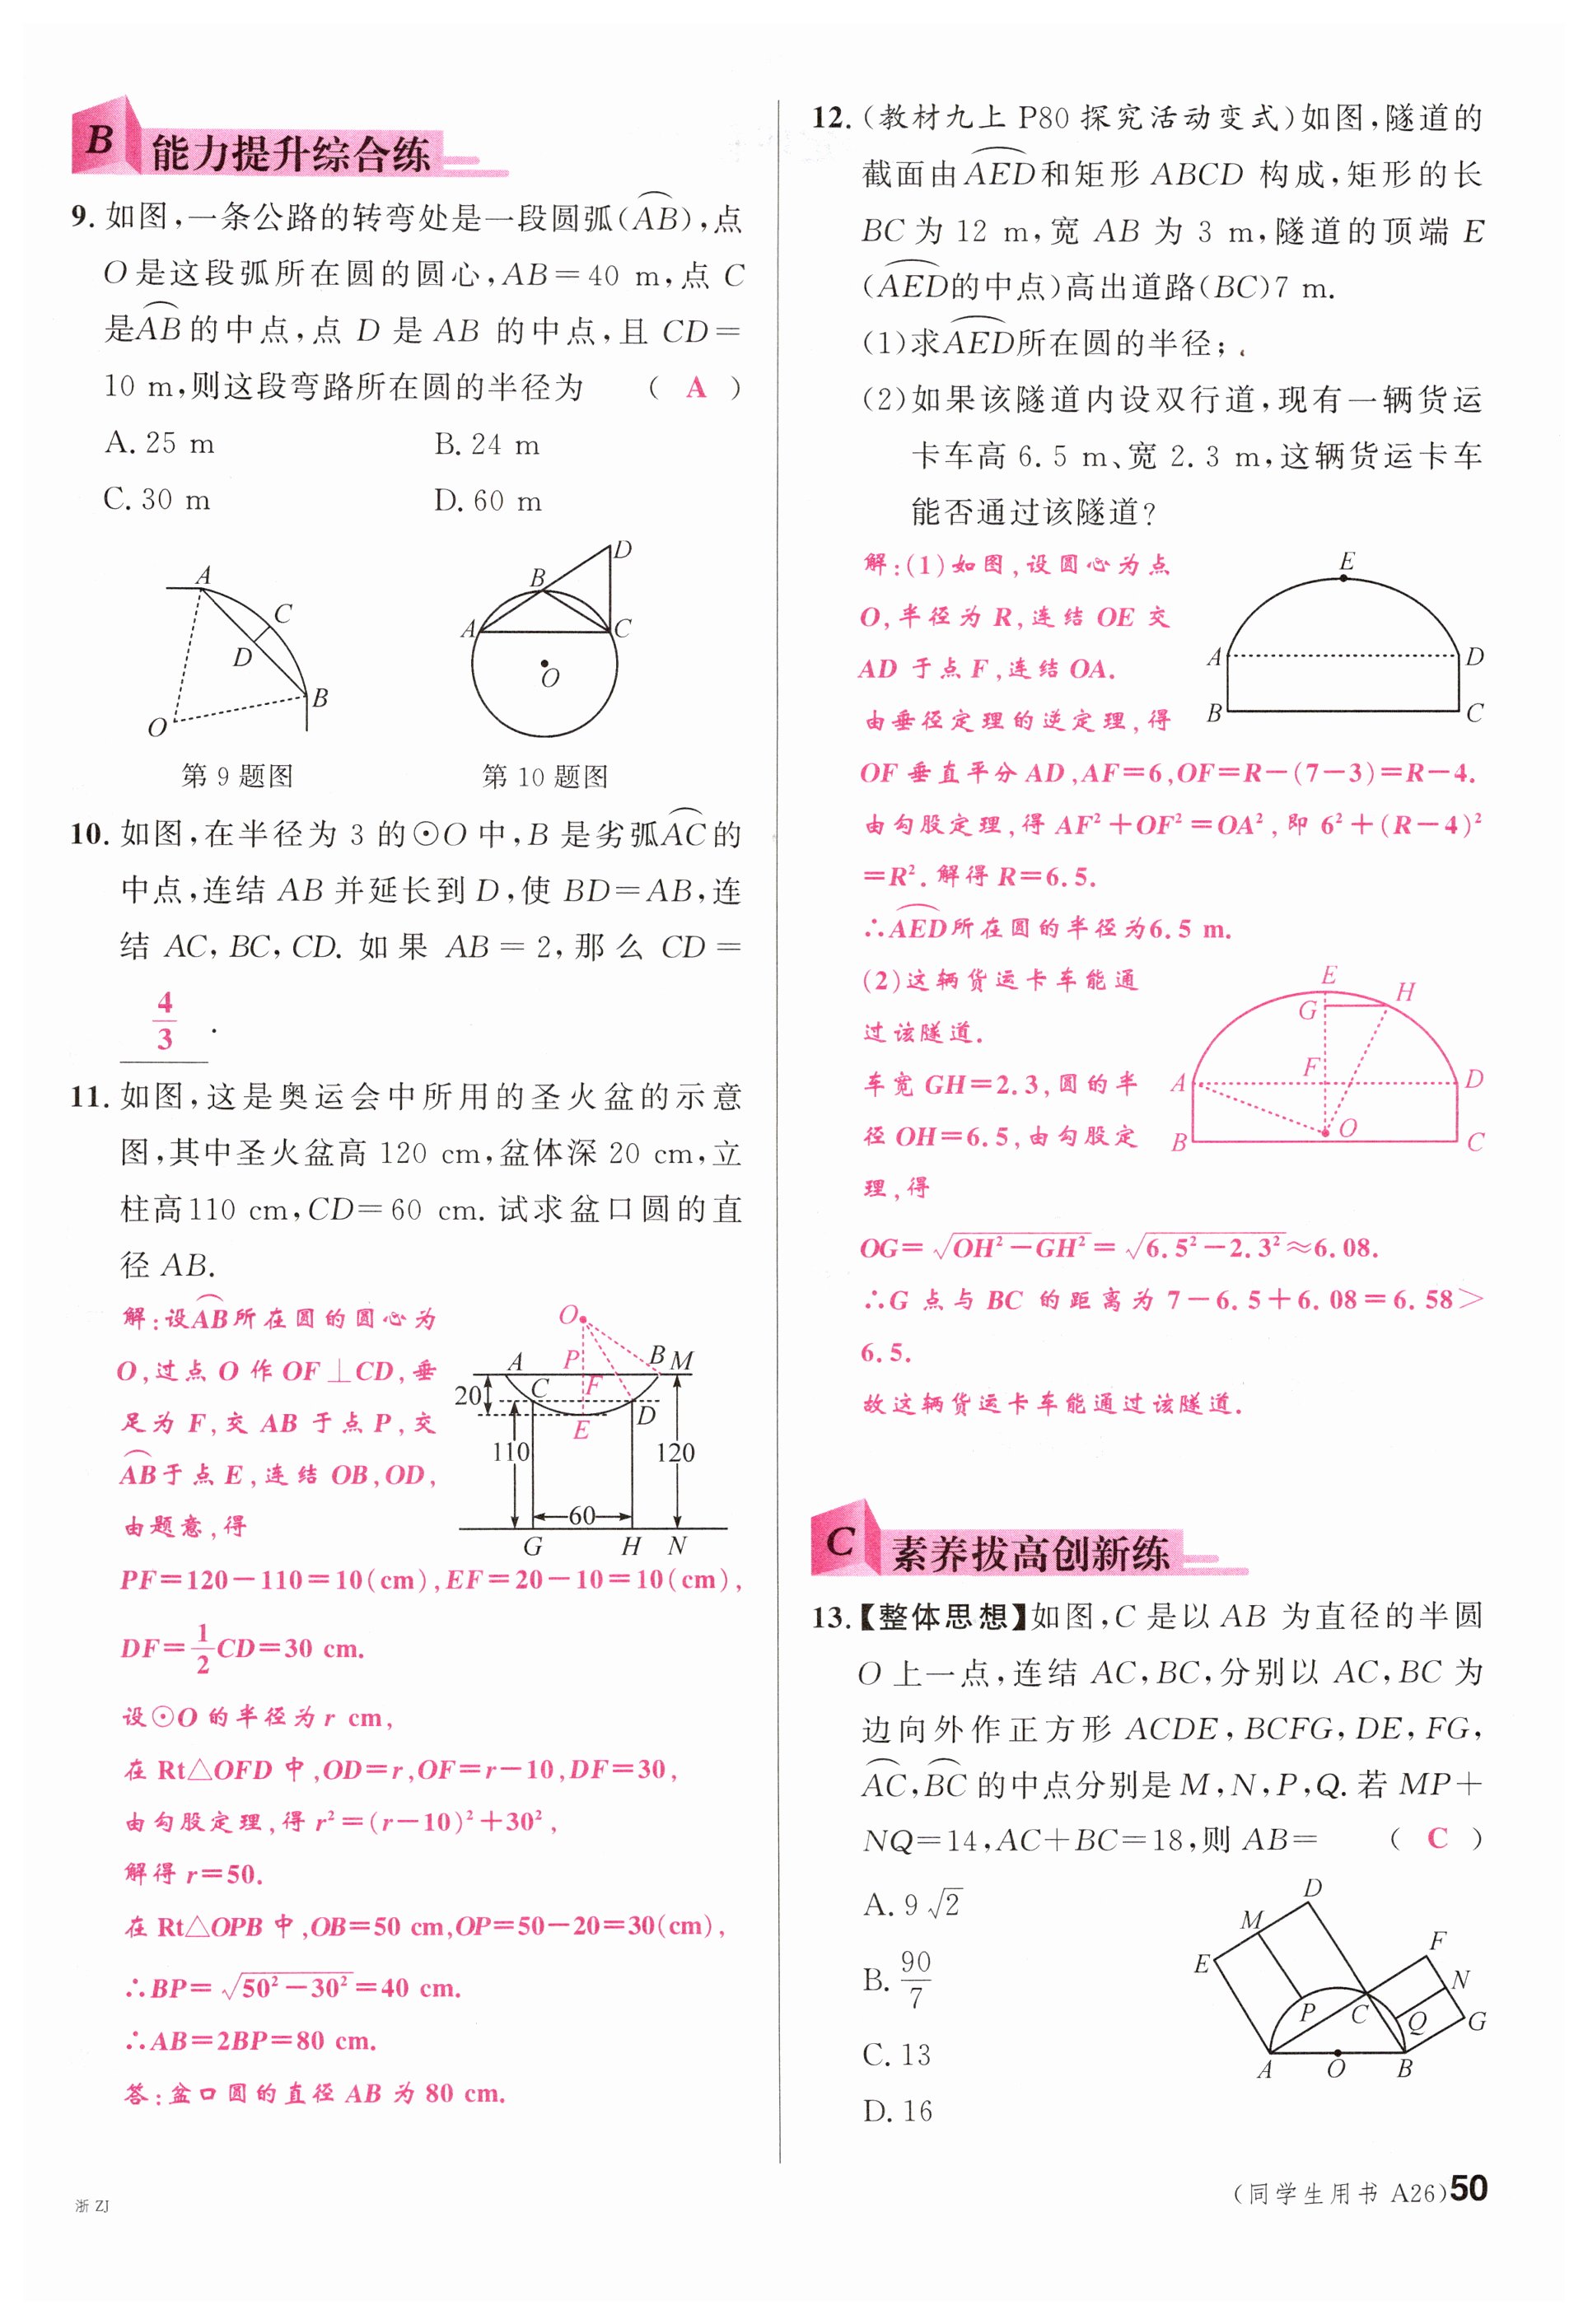 B 能力提升综合练
9. 如图,一条公路的转弯处是一段圆弧(AB),点
O是这段弧所在圆的圆心,AB=40 m,点 C
是AB的中点,点 D 是 AB 的中点,且 CD=
10 m,则这段弯路所在圆的半径为 ( A )
A. 25 m B. 24 m
C. 30 m D. 60 m
A
C
D
B
O
第 9 题图
D
B
A
C
O
第 10 题图
10. 如图,在半径为 3 的⊙O 中,B 是劣弧AC的
中点,连结 AB 并延长到 D,使 BD=AB,连
结 AC, BC, CD. 如果 AB=2,那么 CD=
4/3 .
11. 如图,这是奥运会中所用的圣火盆的示意
图,其中圣火盆高 120 cm,盆体深 20 cm,立
柱高110 cm,CD=60 cm. 试求盆口圆的直
径 AB.
解:设AB所在圆的圆心为
O,过点 O 作 OF⊥CD,垂
足为 F,交 AB 于点 P,交
AB于点 E,连结 OB,OD,
由题意,得
O
A P B M
20 C F
E D
110 120
60
G H N
PF=120-110=10(cm),EF=20-10=10(cm),
DF=1/2CD=30 cm.
设⊙O 的半径为 r cm,
在 Rt△OFD 中,OD=r,OF=r-10,DF=30,
由勾股定理,得 r²=(r-10)²+30²,
解得 r=50.
在 Rt△OPB 中,OB=50 cm,OP=50-20=30(cm),
∴BP=√(50²-30²)=40 cm.
∴AB=2BP=80 cm.
答:盆口圆的直径 AB 为 80 cm.
浙 ZJ
12. (教材九上 P80 探究活动变式)如图,隧道的
截面由AED和矩形 ABCD 构成,矩形的长
BC 为 12 m,宽 AB 为 3 m,隧道的顶端 E
(AED的中点)高出道路(BC)7 m.
(1)求AED所在圆的半径;
(2)如果该隧道内设双行道,现有一辆货运
卡车高 6.5 m、宽 2.3 m,这辆货运卡车
能否通过该隧道?
解:(1)如图,设圆心为点
O,半径为 R,连结 OE 交
AD 于点 F,连结 OA.
由垂径定理的逆定理,得
E
A D
B C
OF 垂直平分 AD,AF=6,OF=R-(7-3)=R-4.
由勾股定理,得 AF²+OF²=OA²,即 6²+(R-4)²
=R². 解得 R=6.5.
∴AED所在圆的半径为6.5 m.
(2)这辆货运卡车能通
过该隧道.
车宽 GH=2.3,圆的半
径 OH=6.5,由勾股定
理,得
E
G H
F
A D
O
B C
OG=√(OH²-GH²)=√(6.5²-2.3²)≈6.08.
∴G 点与 BC 的距离为 7-6.5+6.08=6.58>
6.5.
故这辆货运卡车能通过该隧道.
C 素养拔高创新练
13.【整体思想】如图,C 是以 AB 为直径的半圆
O 上一点,连结 AC,BC,分别以 AC,BC 为
边向外作正方形 ACDE,BCFG,DE,FG,
AC,BC的中点分别是 M,N,P,Q. 若 MP+
NQ=14,AC+BC=18,则 AB= ( C )
A. 9√2
B. 90/7
C. 13
D. 16
D
M
F
E
N
P C Q G
A O B
(同学生用书 A26)50